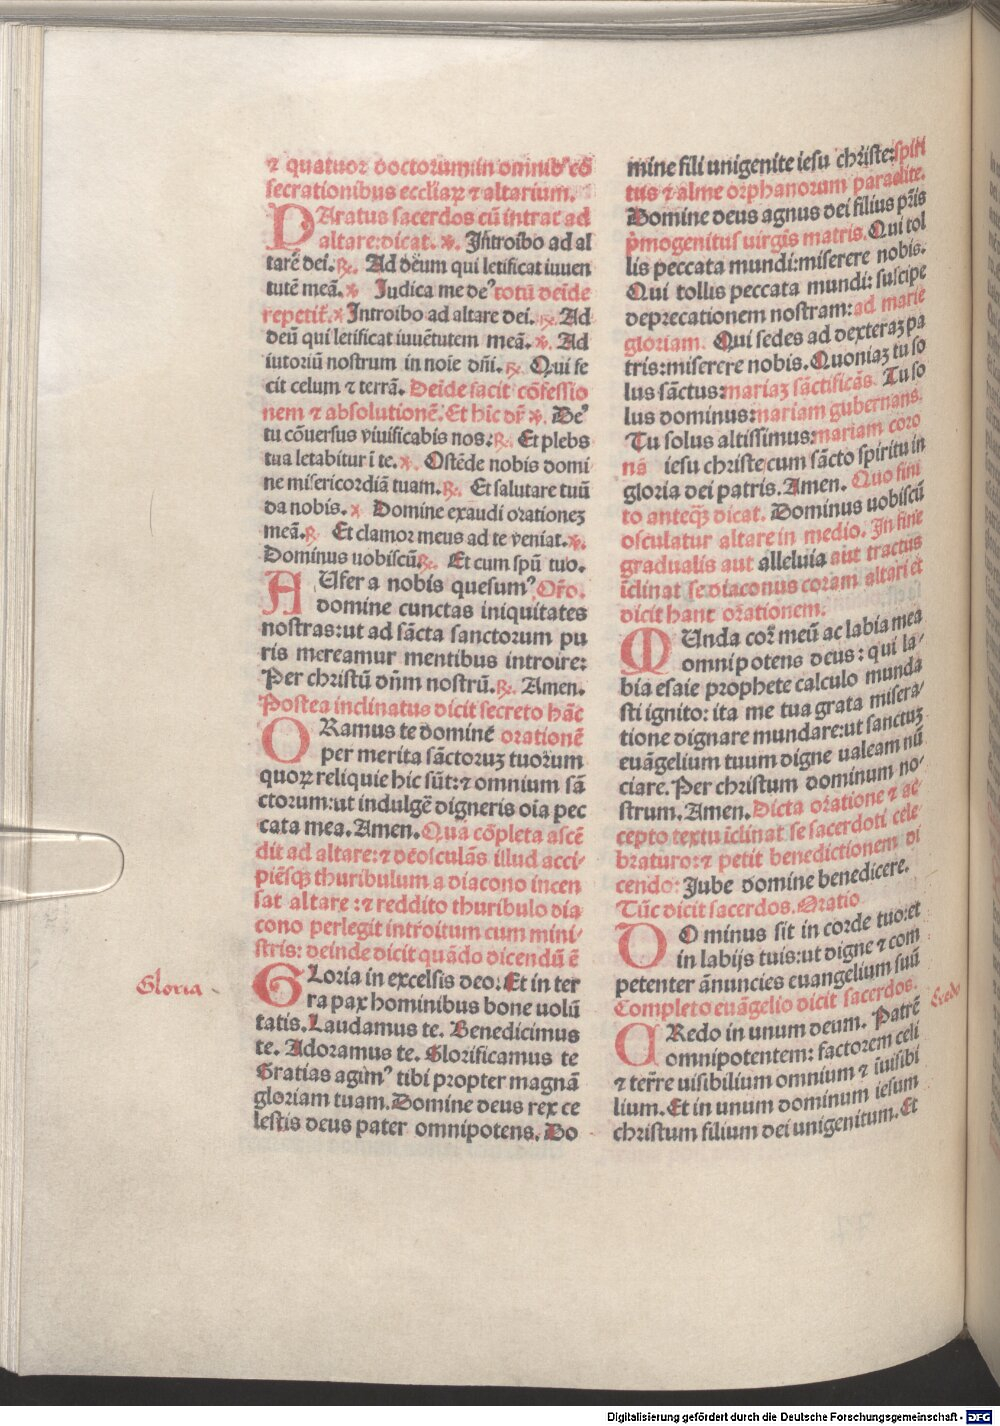 ⁊ quatuor doctorum:in omnib᷒ cō
secrationibus eccliaꝝ ⁊ altarium.
PAratus sacerdos cū intrat ad
altare:dicat. ℣. Introibo ad al
tarē dei.℟. Ad dēum qui letificat iuuen
tutē meā.℣ Judica me deꝰ totū deīde
repetit᷑.℣ Introibo ad altare dei. ℟. Ad
deū qui letificat iuuētutem meā.℣. Ad
iutoriū nostrum in noīe dn̄i.℟. Qui fe
cit celum ⁊ terrā. Deīde facit cōfessio
nem ⁊ absolutionē. Et hic dr̄ ℣. Deꝰ
tu cōuersus viuificabis nos.℟. Et plebs
tua letabitur ī te.℣. Ostēde nobis domi
ne misericordiā tuam.℟. Et salutare tuū
da nobis.℣ Domine exaudi orationeꝫ
meā.℟ Et clamor meus ad te veniat.℣.
Dominus vobiscū.℟. Et cum spū tuo.
AUfer a nobis quesumꝰ Or̄o.
domine cunctas iniquitates
nostras:ut ad sācta sanctorum pu
ris mereamur mentibus introire:
Per christū dn̄m nostrū.℟. Amen.
Postea inclinatus dicit secreto hāc
ORamus te dominē orationē
per merita sāctoruꝫ tuorum
quoꝝ reliquie hic sūt:⁊ omnium sā
ctorum:ut indulgē digneris oīa pec
cata mea. Amen. Qua cōpleta ascē
dit ad altare:⁊ deosculās illud acci-
piēsqꝫ thuribulum a diacono incen
sat altare :⁊ reddito thuribulo dia
cono perlegit introitum cum mini-
stris: deinde dicit quādo dicendū ē
GLoria in excelsis deo. Et in ter
ra pax hominibus bone uolū
tatis. Laudamus te. Benedicimus
te. Adoramus te. Glorificamus te
Gratias agimꝰ tibi propter magnā
gloriam tuam. Domine deus rex ce
lestis deus pater omnipotens. Do
Gloria
mine fili unigenite iesu christe:spiri
tus ⁊ alme orphanorum paraclite.
Domine deus agnus dei filius pr̄is
p̄mogenitus uirgīs matris. Qui tol
lis peccata mundi:miserere nobis.
Qui tollis peccata mundi: suscipe
deprecationem nostram:ad marie
gloriam. Qui sedes ad dexteraꝫ pa
tris:miserere nobis. Quoniaꝫ tu so
lus sāctus:mariaꝫ sāctificās. Tu so
lus dominus:mariam gubernans.
Tu solus altissimus:mariam coro
nā iesu christe cum sācto spiritu in
gloria dei patris. Amen. Quo fini
to anteqꝫ dicat. Dominus uobiscū
osculatur altare in medio. In fine
gradualis aut alleluia aut tractus
īclinat se diaconus coram altari et
dicit hanc orationem:
MUnda cor meū ac labia mea
omnipotens deus: qui la-
bia esaie prophete calculo munda
sti ignito: ita me tua grata misera-
tione dignare mundare:ut sanctuꝫ
euāgelium tuum digne ualeam nū
ciare. Per christum dominum no-
strum. Amen. Dicta oratione ⁊ ac-
cepto textu īclinat se sacerdoti cele-
braturo:⁊ petit benedictionem di
cendo: Jube domine benedicere.
Tūc dicit sacerdos. Oratio
DOminus sit in corde tuo:et
in labijs tuis:ut digne ⁊ com
petenter ānuncies euangelium suū
Completo euāgelio dicit sacerdos.
CRedo in unum deum. Patrē
omnipotentem: factorem celi
⁊ terre uisibilium omnium ⁊ īuisibi
lium. Et in unum dominum iesum
christum filium dei unigenitum. Et
Credo
Digitalisierung gefördert durch die Deutsche Forschungsgemeinschaft - DFG